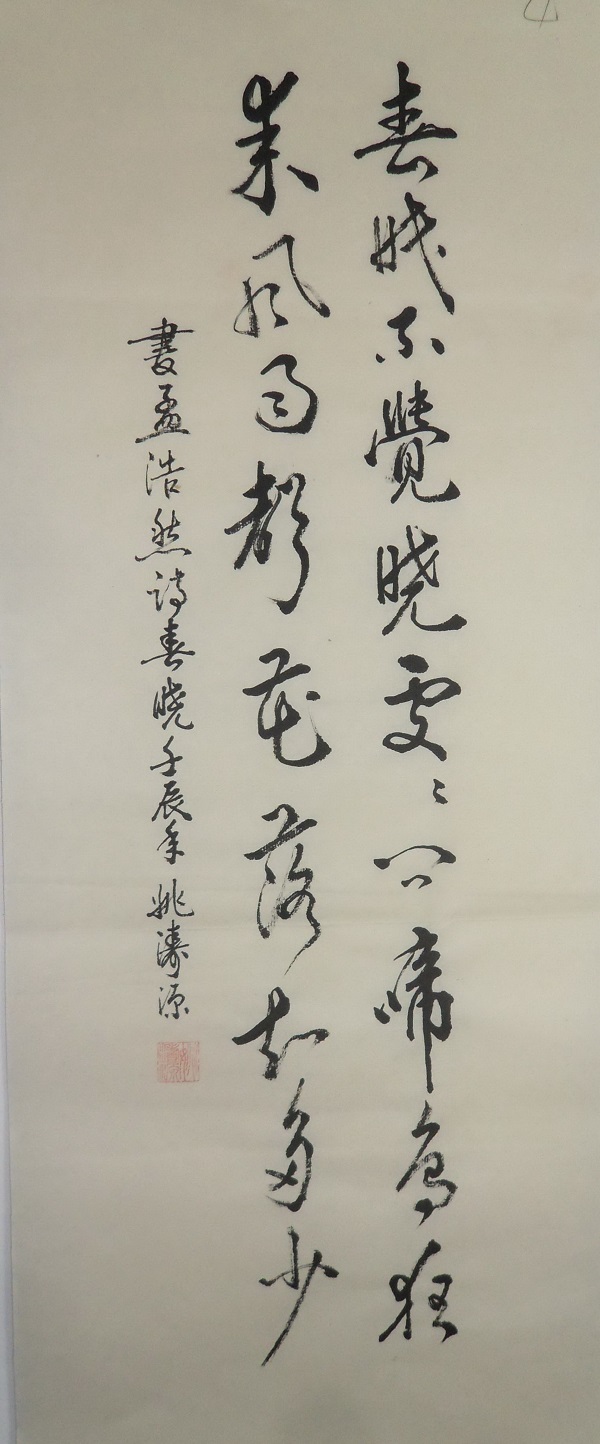 春眠不覺晓處々聞啼鳥夜
來風雨聲花落知多少
書孟浩然诗春晓壬辰年姚濤源